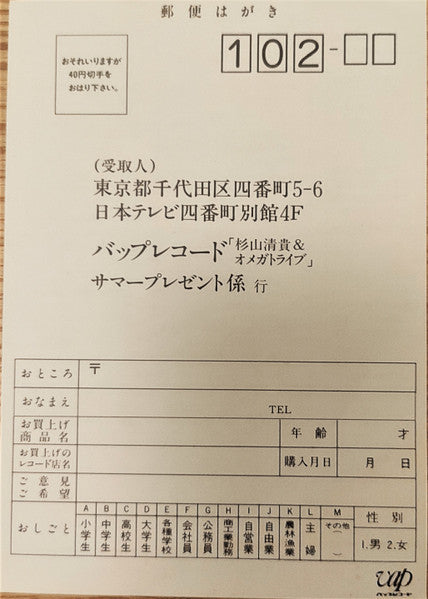 郵便はがき
おそれいりますが
40円切手を
おはり下さい。
102-
(受取人)
東京都千代田区四番町5-6
日本テレビ四番町別館4F
バップレコード「杉山清貴&
オメガトライブ」
サマープレゼント係 行
おところ 〒
おなまえ TEL
お買上げ
商品名 年齢 才
お買上げの
レコード店名 購入月日 月 日
ご意見
ご希望
おしごと
A 小学生
B 中学生
C 高校生
D 大学生
E 各種学校
F 会社員
G 公務員
H 商工業勤務
I 自営業
J 自由業
K 農林漁業
L 主婦
M その他( )
性別
1.男 2.女
vap